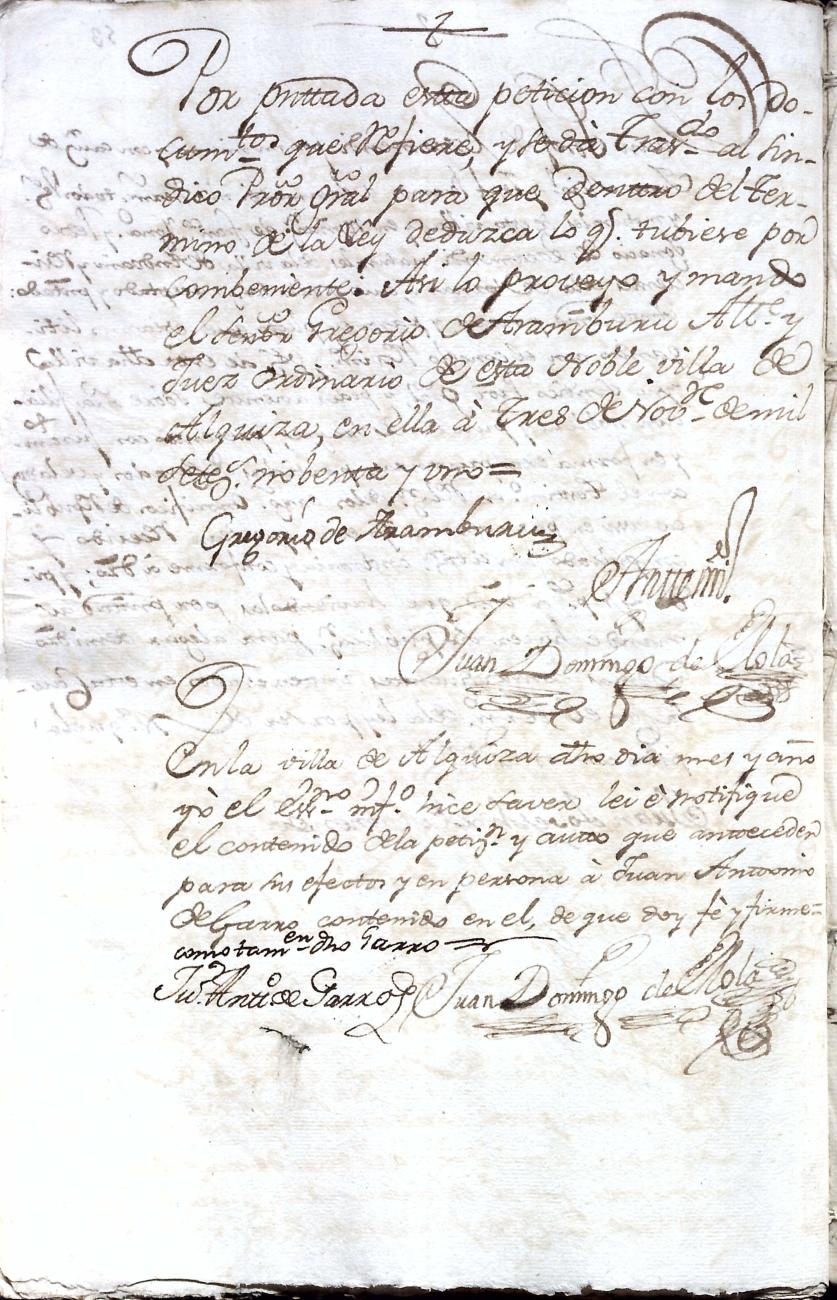 Por pnttada estta peticion con los do-
cumtos que Refiere, y se dà Traslo al sin-
dico Pror Gral para que denttro del ter-
mino de la Ley deduzca lo q.e tubiere por
combeniente. Asi lo proveyo y mando
el señor Gregorio de Aramburu Alle y
Juez ordinario de esta Noble villa de
Alquiza, en ella à Tres de Novre de mil
setes. nobenta y uno =
Gregorio de Aramburu
Antte mi.
Juan Domingo de Olola
En la villa de Alquiza dho dia mes y año
yò el essno infº hice saver lei è notifique
el contenido de la petizn y autto que anteceden
para sus efectos y en persona à Juan Anttonio
de Garro contenido en el, de que doy fè y firme =
como tamen dho Garro =
Ju.º Anto de Garro
Juan Domingo de Olola